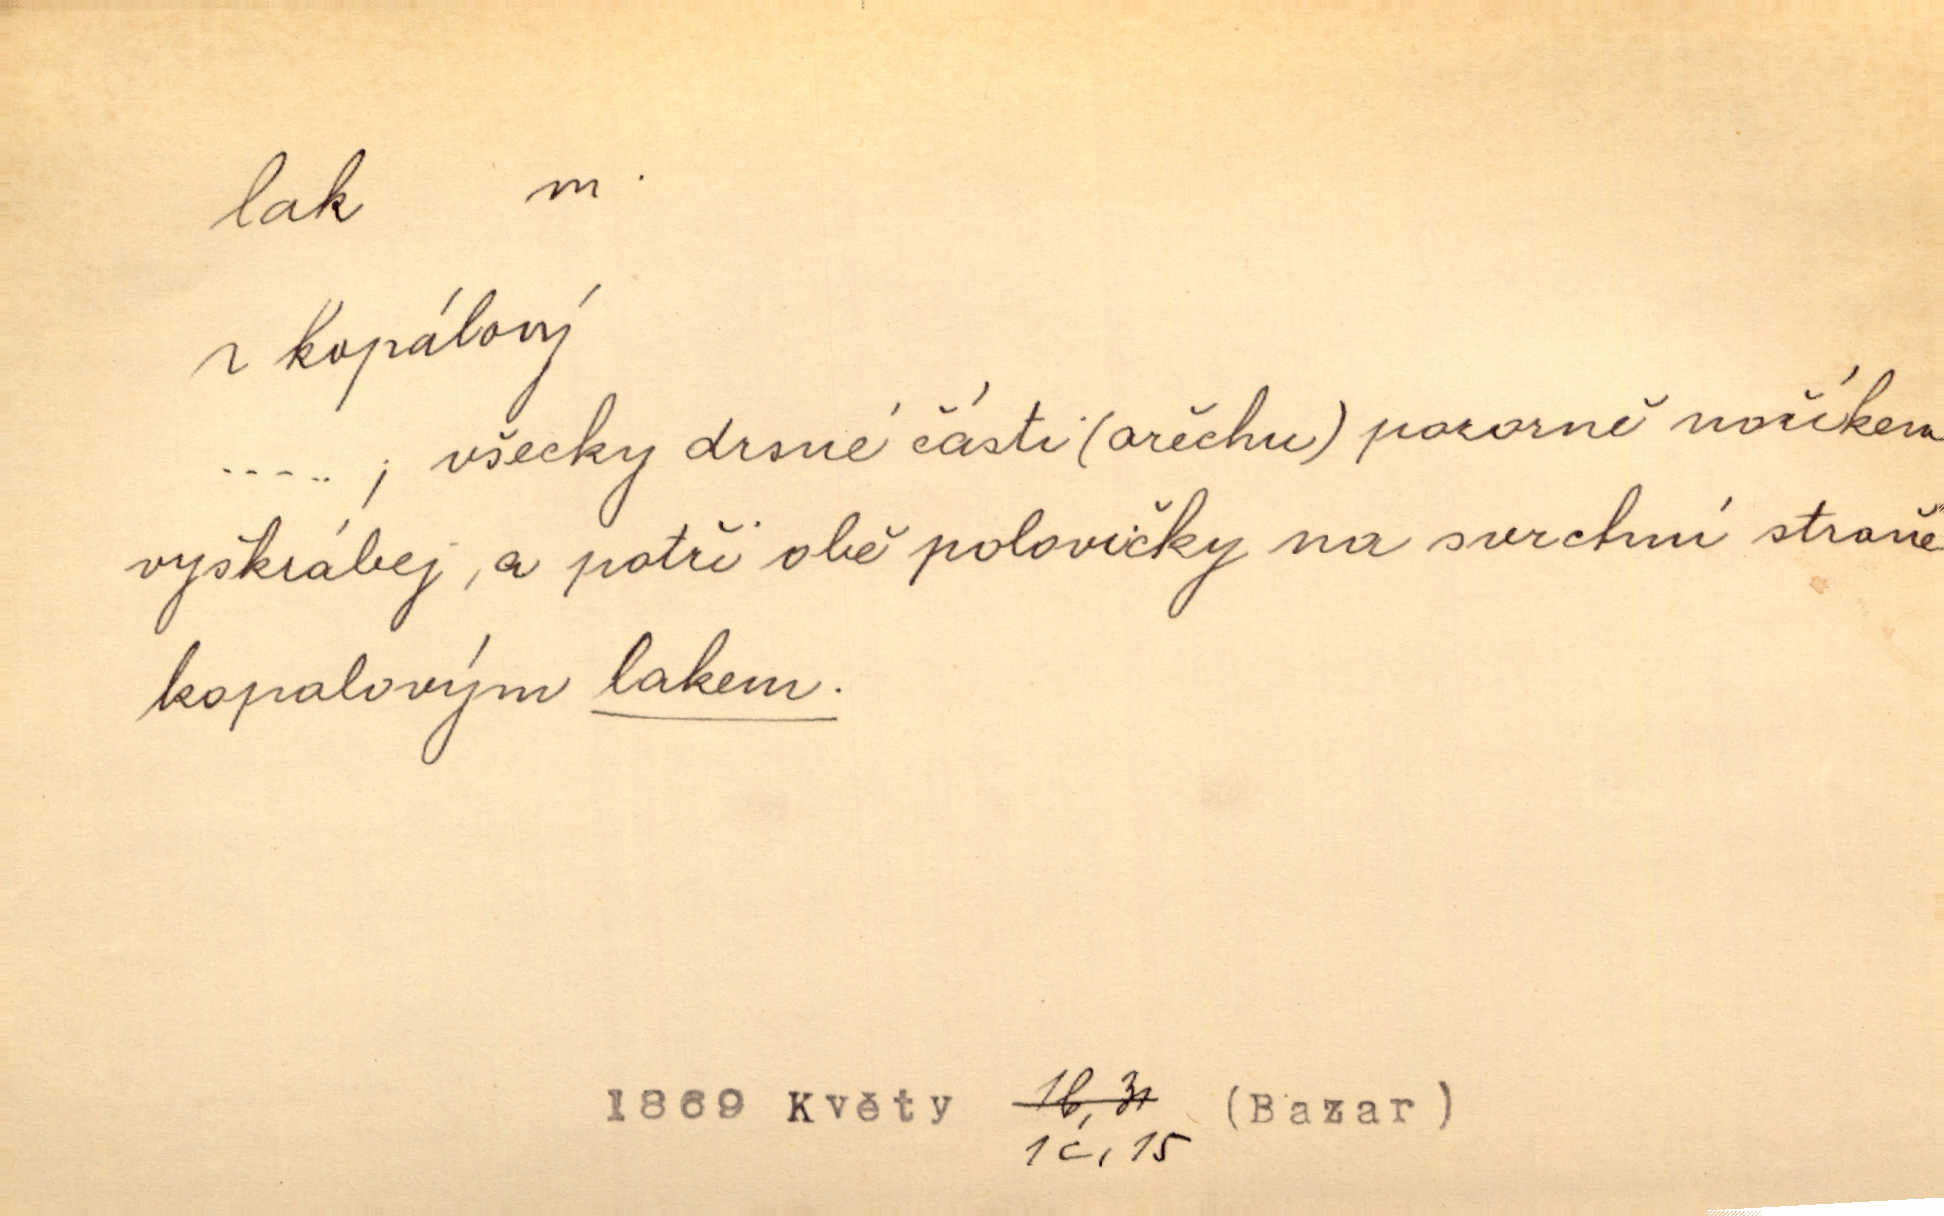 lak m.
r kopálový
..... ; všecky drsné části (ořěchu) pozorně nožíkem
vyškrábej, a potři obě polovičky na svrchní straně
kopalovým lakem.
1869 Květy 1b, 31 (Bazar)
1č, 15